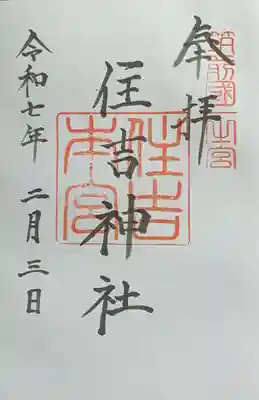 奉拝
筑前國一之宮
住吉神社
住吉本宮
令和七年 二月 三日